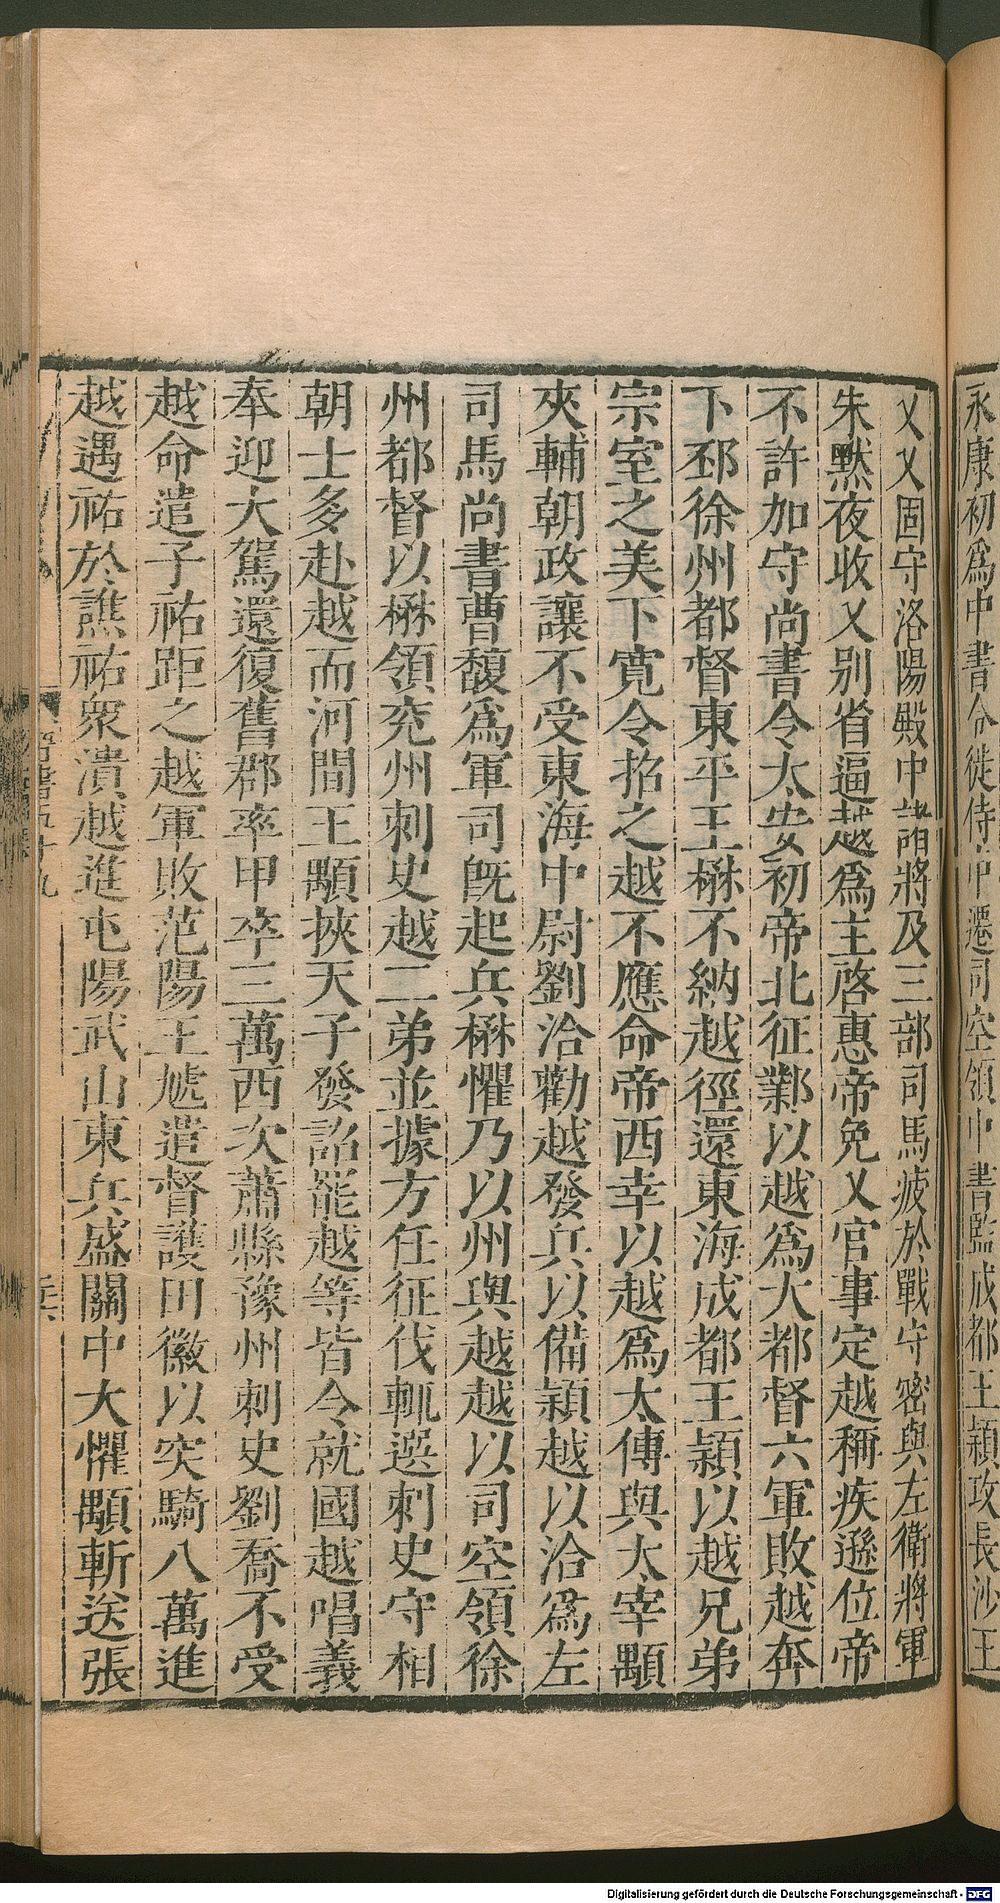 永康初爲中書令徙侍中遷司空領中書監成都王穎攻長沙王
乂乂固守洛陽殿中諸將及三部司馬疲於戰守密與左衛將軍
朱默夜收乂别省逼越爲主啓惠帝免乂官事定越稱疾遜位帝
不許加守尚書令太安初帝北征鄴以越爲大都督六軍敗越奔
下邳徐州都督東平王楙不納越徑還東海成都王穎以越兄弟
宗室之美下寛令招之越不應命帝西幸以越爲太傅與太宰顒
夾輔朝政讓不受東海中尉劉洽勸越發兵以備穎越以洽爲左
司馬尚書曹馥爲軍司旣起兵楙懼乃以州與越越以司空領徐
州都督以楙領兖州刺史越二弟並據方任征伐輒選刺史守相
朝士多赴越而河間王顒挾天子發詔罷越等皆令就國越唱義
奉迎大駕還復舊都率甲卒三萬西次蕭縣豫州刺史劉喬不受
越命遣子祐距之越軍敗范陽王虓遣督護田徽以突騎八萬進
越遇祐於譙祐衆潰越進屯陽武山東兵盛關中大懼顒斬送張
晉書五十九
Digitalisierung gefördert durch die Deutsche Forschungsgemeinschaft - DFG